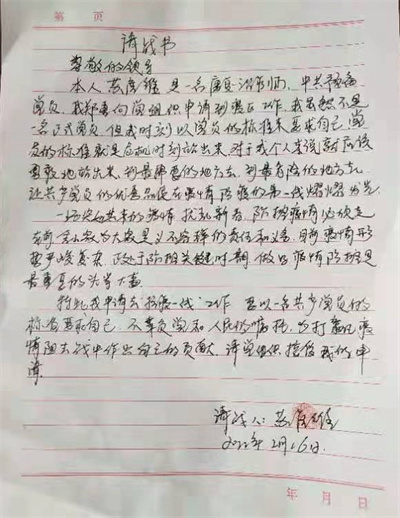 第 页
请战书
尊敬的领导
本人 是一名康复治疗师,中共预备
党员,我郑重向党组织申请到 工作,我虽然不是
一名正式党员,但我时刻以党员的标准来要求自己,党
员的标准就是危机时刻站出来,对于我个人来说就应该
勇敢地站出来,到最需要的地方去,到最危险的地方去,
让共产党员的 在疫情防疫的第一线熠熠发光
一场突如其来的疫情,扰乱新春,防控疫情
义不容辞的责任和义务,目前疫情形
势严峻复杂,正处于防控关键时期,做好疫情防控是
最重要的头等大事
特此我申请去 一线工作,要以一名共产党员的
标准要求自己,不辜负党和人民的嘱托,为打赢
阻击战中作出自己的贡献,请党组织接受我的申
请
请战人:
2022年2月26日
年 月 日